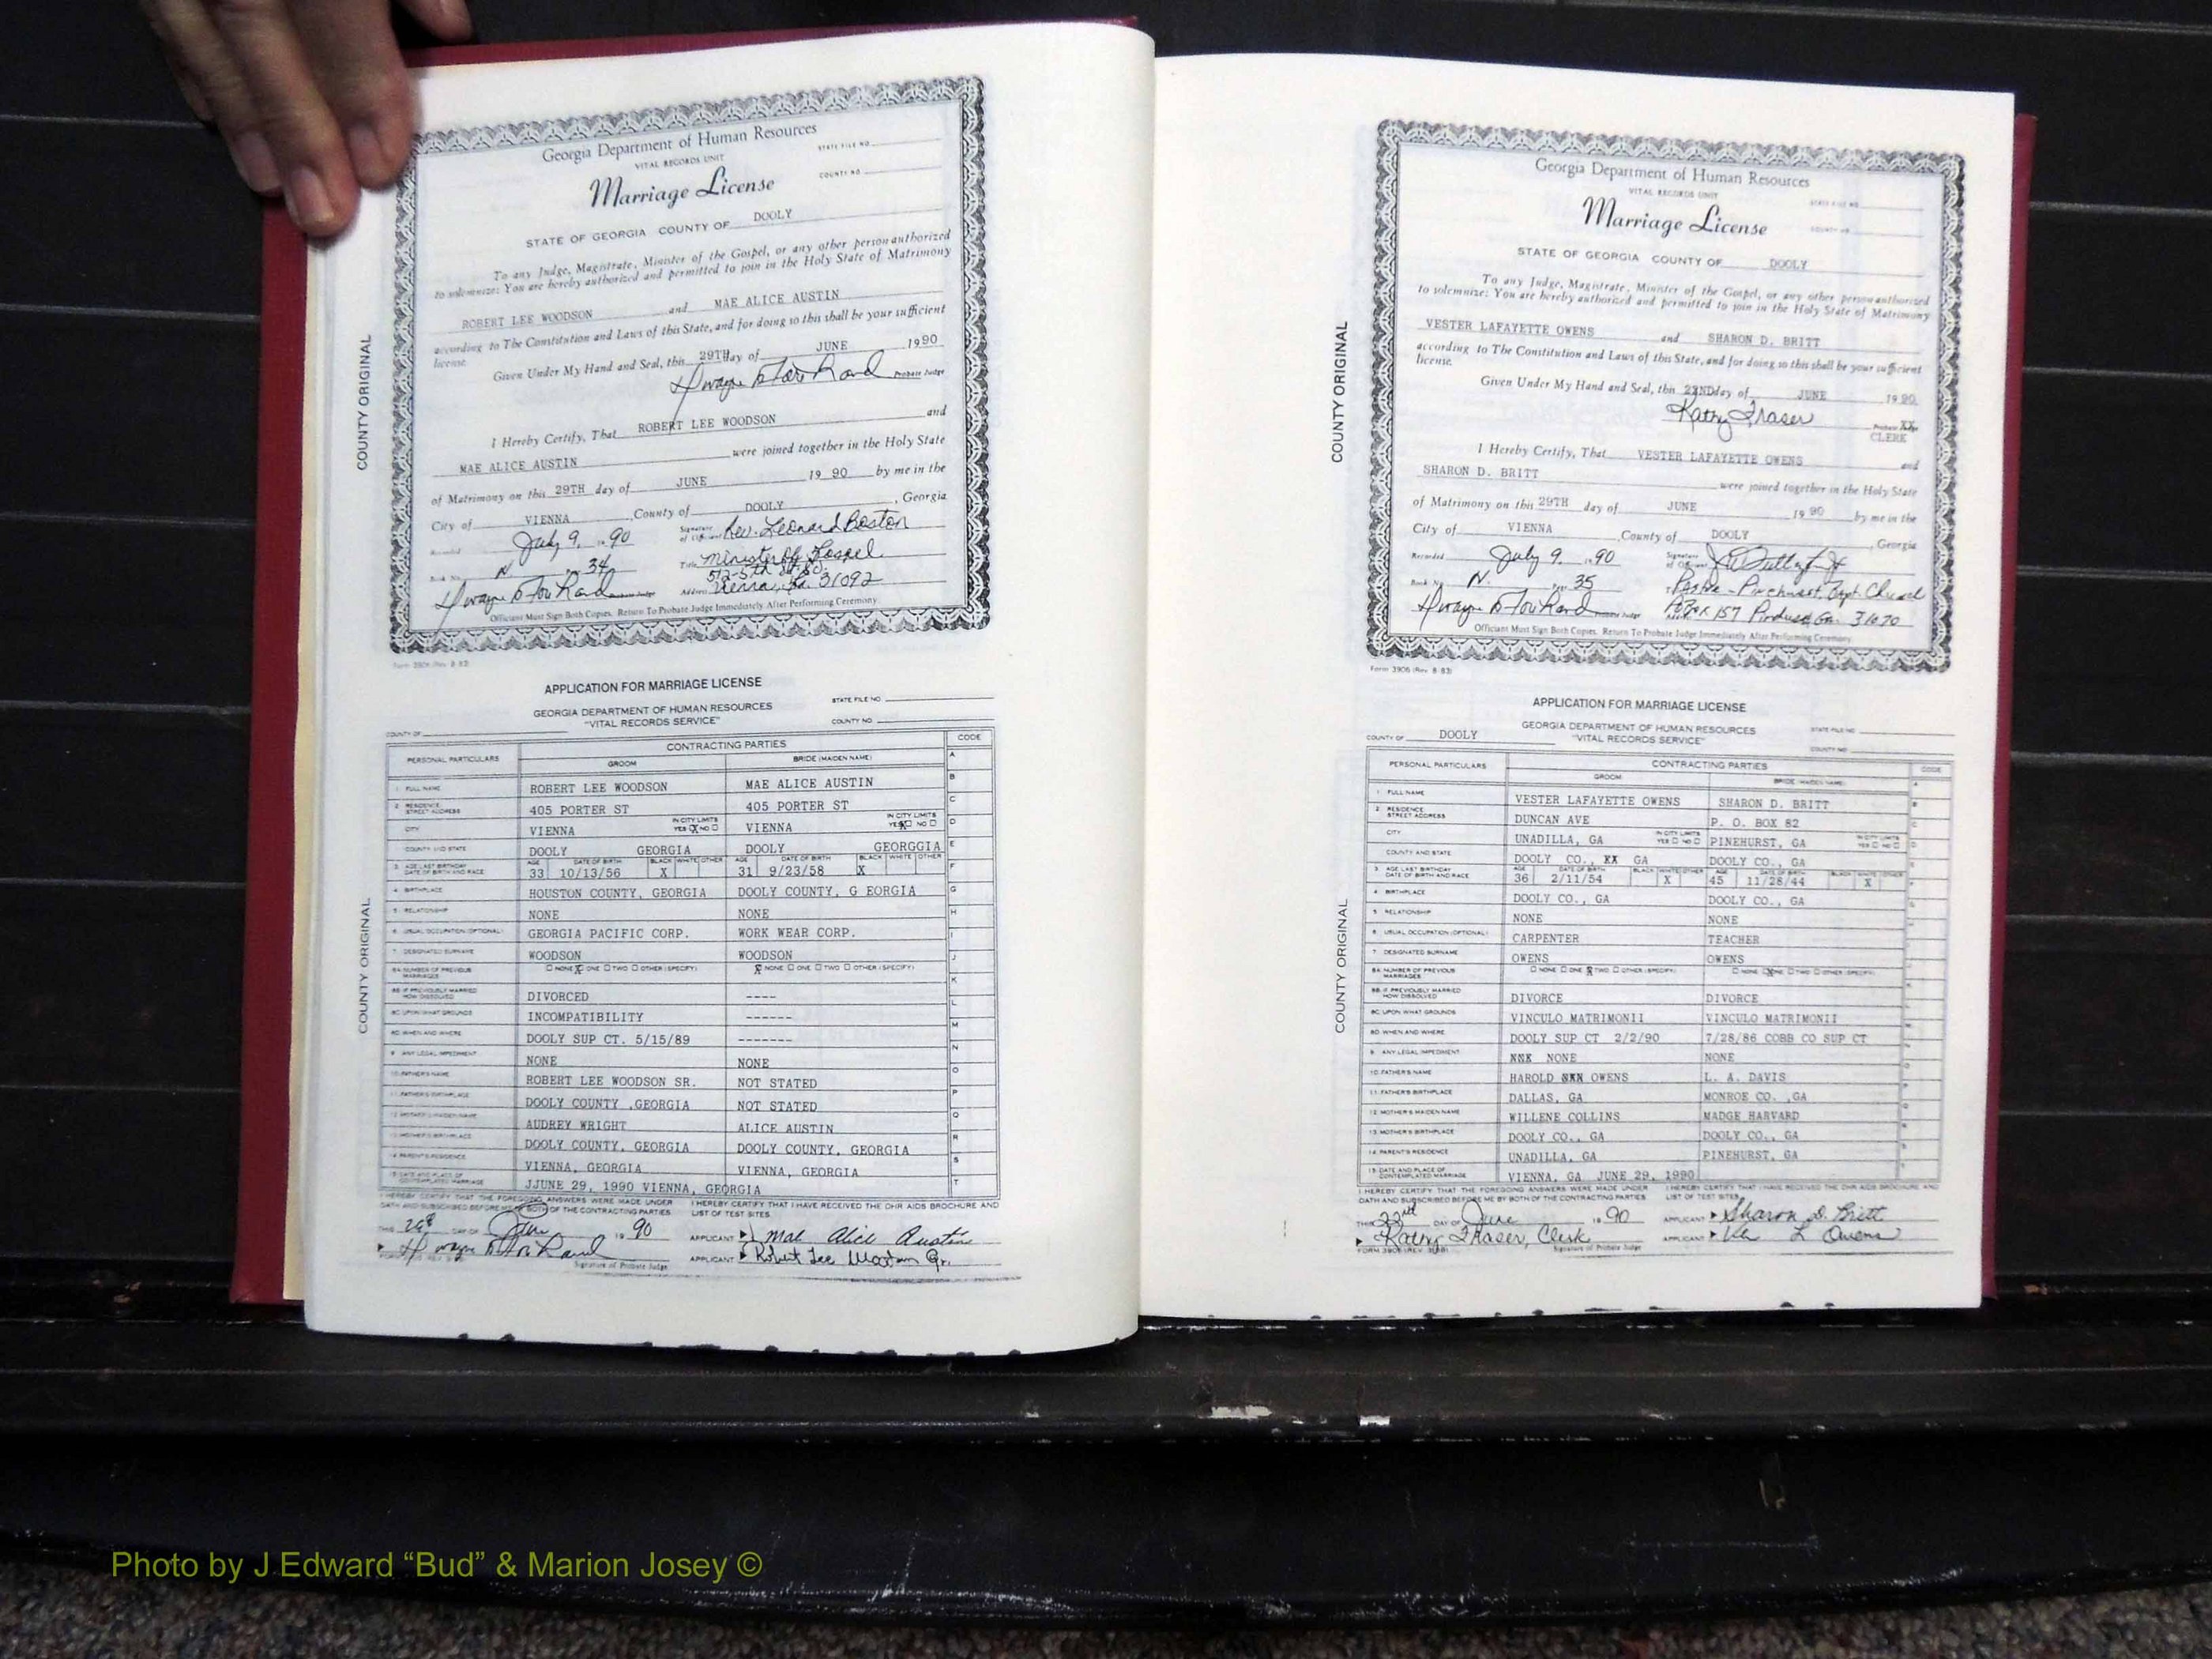 Georgia Department of Human Resources
VITAL RECORDS UNIT
STATE FILE NO.
Marriage License
COUNTY NO.
STATE OF GEORGIA COUNTY OF DOOLY
To any Judge, Magistrate, Minister of the Gospel, or any other person authorized
to solemnize: You are hereby authorized and permitted to join in the Holy State of Matrimony
ROBERT LEE WOODSON and MAE ALICE AUSTIN
according to The Constitution and Laws of this State, and for doing so this shall be your sufficient
license.
Given Under My Hand and Seal, this 29TH day of JUNE 1990
Probate Judge
I Hereby Certify, That ROBERT LEE WOODSON and
MAE ALICE AUSTIN were joined together in the Holy State
of Matrimony on this 29TH day of JUNE 19 90 by me in the
City of VIENNA, County of DOOLY, Georgia
Recorded July 9, 1990 Signature of Official Rev. Leonard Boston
Book No. N. 34 Title Minister of Gospel
512-5th St. So.
Probate Judge Address Vienna, Ga. 31092
Officiant Must Sign Both Copies. Return To Probate Judge Immediately After Performing Ceremony
Form 3906 (Rev. 8-83)
COUNTY ORIGINAL
APPLICATION FOR MARRIAGE LICENSE
GEORGIA DEPARTMENT OF HUMAN RESOURCES
"VITAL RECORDS SERVICE"
STATE FILE NO.
COUNTY NO.
COUNTY OF
PERSONAL PARTICULARS CONTRACTING PARTIES CODE
GROOM BRIDE (MAIDEN NAME)
1 FULL NAME ROBERT LEE WOODSON MAE ALICE AUSTIN
2 RESIDENCE STREET ADDRESS 405 PORTER ST 405 PORTER ST
CITY VIENNA IN CITY LIMITS YES X NO VIENNA IN CITY LIMITS YES X NO
COUNTY AND STATE DOOLY GEORGIA DOOLY GEORGGIA
3 AGE LAST BIRTHDAY DATE OF BIRTH AND RACE AGE 33 DATE OF BIRTH 10/13/56 BLACK X WHITE OTHER AGE 31 DATE OF BIRTH 9/23/58 BLACK X WHITE OTHER
4 BIRTHPLACE HOUSTON COUNTY, GEORGIA DOOLY COUNTY, G EORGIA
5 RELATIONSHIP NONE NONE
6 USUAL OCCUPATION (OPTIONAL) GEORGIA PACIFIC CORP. WORK WEAR CORP.
7 DESIGNATED SURNAME WOODSON WOODSON
8A NUMBER OF PREVIOUS MARRIAGES NONE X ONE TWO OTHER (SPECIFY) X NONE ONE TWO OTHER (SPECIFY)
8B IF PREVIOUSLY MARRIED HOW DISSOLVED DIVORCED ----
8C UPON WHAT GROUNDS INCOMPATIBILITY ------
8D WHEN AND WHERE DOOLY SUP CT. 5/15/89 -------
9 ANY LEGAL IMPEDIMENT NONE NONE
10 FATHER'S NAME ROBERT LEE WOODSON SR. NOT STATED
11 FATHER'S BIRTHPLACE DOOLY COUNTY ,GEORGIA NOT STATED
12 MOTHER'S MAIDEN NAME AUDREY WRIGHT ALICE AUSTIN
13 MOTHER'S BIRTHPLACE DOOLY COUNTY, GEORGIA DOOLY COUNTY, GEORGIA
14 PARENT'S RESIDENCE VIENNA, GEORGIA VIENNA, GEORGIA
15 DATE AND PLACE OF CONTEMPLATED MARRIAGE JJUNE 29, 1990 VIENNA, GEORGIA
A B C D E F G H I J K L M N O P Q R S T
I HEREBY CERTIFY THAT THE FOREGOING ANSWERS WERE MADE UNDER OATH AND SUBSCRIBED BEFORE ME BY BOTH OF THE CONTRACTING PARTIES
I HEREBY CERTIFY THAT I HAVE RECEIVED THE DHR AIDS BROCHURE AND LIST OF TEST SITES
THIS DAY OF June 19 90 APPLICANT Mae Alice Austin
Signature of Probate Judge APPLICANT Robert Lee Woodson Jr.
COUNTY ORIGINAL
Georgia Department of Human Resources
VITAL RECORDS UNIT
STATE FILE NO.
Marriage License
COUNTY NO.
STATE OF GEORGIA COUNTY OF DOOLY
To any Judge, Magistrate, Minister of the Gospel, or any other person authorized
to solemnize: You are hereby authorized and permitted to join in the Holy State of Matrimony
VESTER LAFAYETTE OWENS and SHARON D. BRITT
according to The Constitution and Laws of this State, and for doing so this shall be your sufficient
license.
Given Under My Hand and Seal, this 22ND day of JUNE 19 90
Kathy Fraser Probate Judge XX
CLERK
I Hereby Certify, That VESTER LAFAYETTE OWENS and
SHARON D. BRITT were joined together in the Holy State
of Matrimony on this 29TH day of JUNE 19 90 by me in the
City of VIENNA, County of DOOLY, Georgia
Recorded July 9, 1990 Signature of Official
Book No. N. Page 35 Pastor - Pinehurst Bapt. Church
Probate Judge P.O. Box 157 Pinehurst, Ga. 31070
Officiant Must Sign Both Copies. Return To Probate Judge Immediately After Performing Ceremony
Form 3906 (Rev. 8-83)
COUNTY ORIGINAL
APPLICATION FOR MARRIAGE LICENSE
GEORGIA DEPARTMENT OF HUMAN RESOURCES
"VITAL RECORDS SERVICE"
STATE FILE NO.
COUNTY NO.
COUNTY OF DOOLY
PERSONAL PARTICULARS CONTRACTING PARTIES CODE
GROOM BRIDE (MAIDEN NAME)
1 FULL NAME VESTER LAFAYETTE OWENS SHARON D. BRITT
2 RESIDENCE STREET ADDRESS DUNCAN AVE P. O. BOX 82
CITY UNADILLA, GA IN CITY LIMITS YES NO PINEHURST, GA IN CITY LIMITS YES NO
COUNTY AND STATE DOOLY CO., XX GA DOOLY CO., GA
3 AGE LAST BIRTHDAY DATE OF BIRTH AND RACE AGE 36 DATE OF BIRTH 2/11/54 BLACK WHITE X OTHER AGE 45 DATE OF BIRTH 11/28/44 BLACK WHITE X OTHER
4 BIRTHPLACE DOOLY CO., GA DOOLY CO., GA
5 RELATIONSHIP NONE NONE
6 USUAL OCCUPATION (OPTIONAL) CARPENTER TEACHER
7 DESIGNATED SURNAME OWENS OWENS
8A NUMBER OF PREVIOUS MARRIAGES NONE ONE X TWO OTHER (SPECIFY) NONE X ONE TWO OTHER (SPECIFY)
8B IF PREVIOUSLY MARRIED HOW DISSOLVED DIVORCE DIVORCE
8C UPON WHAT GROUNDS VINCULO MATRIMONII VINCULO MATRIMONII
8D WHEN AND WHERE DOOLY SUP CT 2/2/90 7/28/86 COBB CO SUP CT
9 ANY LEGAL IMPEDIMENT NONE NONE
10 FATHER'S NAME HAROLD OWENS L. A. DAVIS
11 FATHER'S BIRTHPLACE DALLAS, GA MONROE CO. ,GA
12 MOTHER'S MAIDEN NAME WILLENE COLLINS MADGE HARVARD
13 MOTHER'S BIRTHPLACE DOOLY CO., GA DOOLY CO., GA
14 PARENT'S RESIDENCE UNADILLA, GA PINEHURST, GA
15 DATE AND PLACE OF CONTEMPLATED MARRIAGE VIENNA, GA JUNE 29, 1990
I HEREBY CERTIFY THAT THE FOREGOING ANSWERS WERE MADE UNDER OATH AND SUBSCRIBED BEFORE ME BY BOTH OF THE CONTRACTING PARTIES
I HEREBY CERTIFY THAT I HAVE RECEIVED THE DHR AIDS BROCHURE AND LIST OF TEST SITES
THIS 22nd DAY OF June 19 90 APPLICANT Sharon D. Britt
Kathy Fraser, Clerk APPLICANT L Owens
Signature of Probate Judge
COUNTY ORIGINAL
Photo by J Edward “Bud” & Marion Josey ©